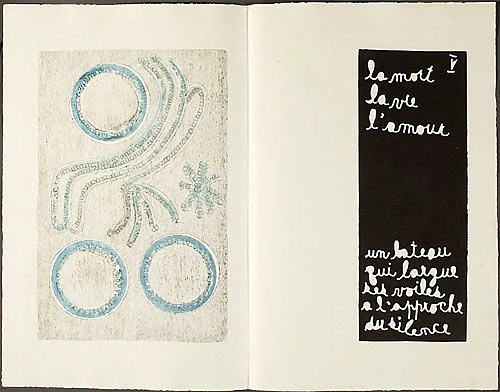 V
la mort
la vie
l'amour
un bateau
qui largue
ses voiles
a l'approche
du silence